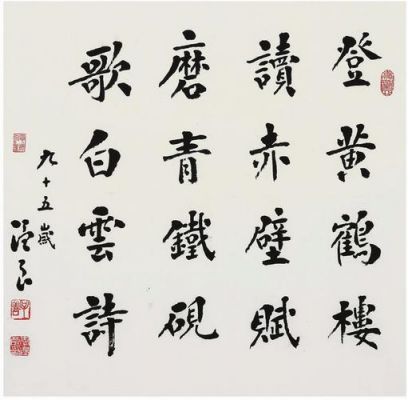 登黄鶴樓
讀赤壁賦
磨青鐵硯
歌白雲詩
九十五歲